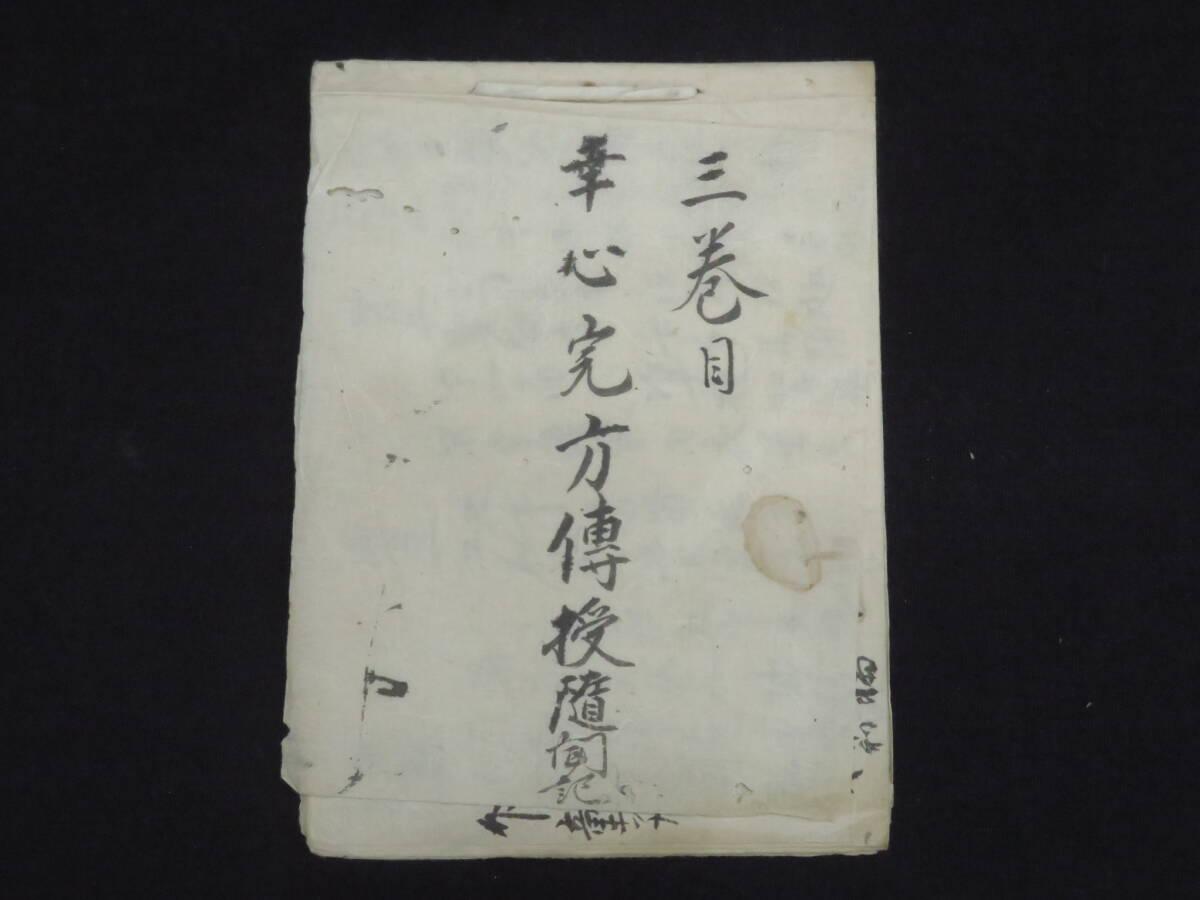 三巻目
幸心完方傳授隨聞記